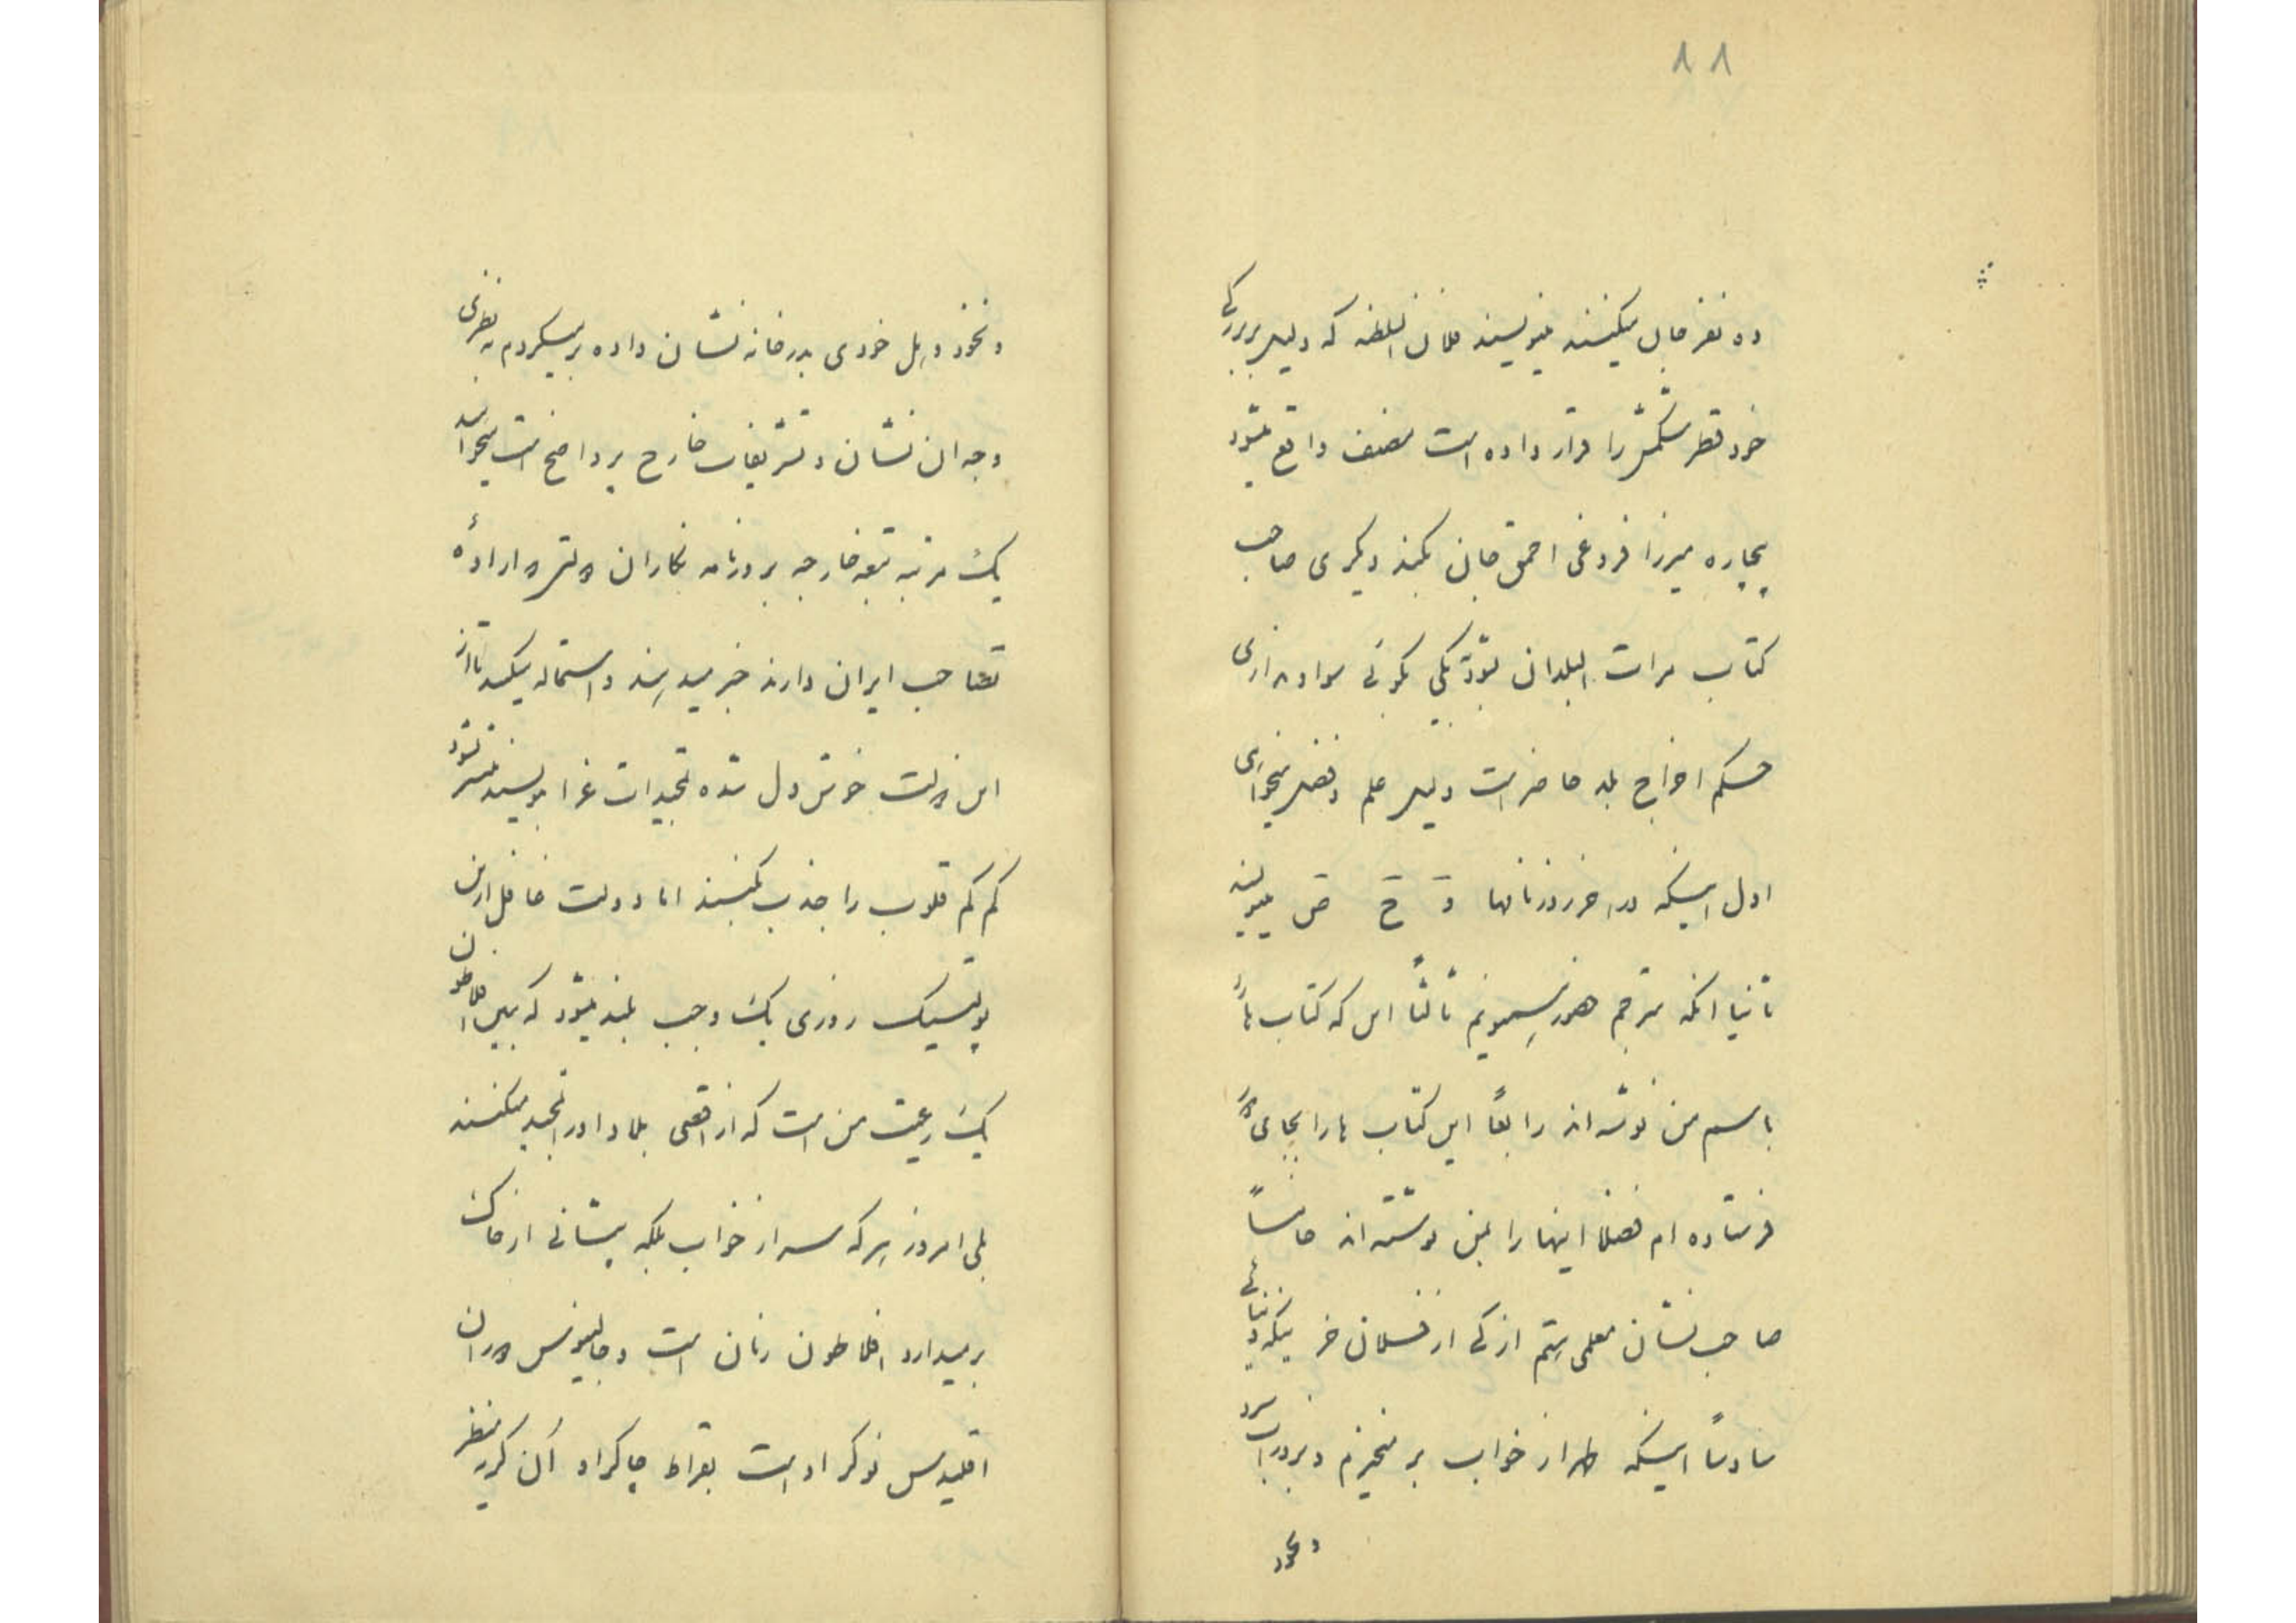 ۸۸
ده نفر جان میکنند مینویسند فلان السلطنه که دلیل بزرگی
خود قطر شکمش را قرار داده است مصنف واقع میشود
بیچاره میرزا فروغی احمق جان بکند دیگری صاحب
کتاب مرات البلدان بشود بگوئی سواد نداری
حکم اخراج بلد حاضر است دلیل علم و فضل میخواهی
اول اینکه در اخر روزنامها و ح ص مینویسند
ثانیا انکه مترجم هستم ثالثا این که کتاب ها را
باسم من نوشته اند رابعاً این کتاب ها را بجای
فرستاده ام فضلا اینها را بمن نوشته اند خامساً
صاحب نشان معلمی هستم از کی از فلان خر
سادساً اینکه ظهر از خواب بر میخیزم و بدرب
و نخود
و نخود و هل خودی بدرخانه نشان داده برمیگردم
وجه ان نشان و تشریفات خارج پر واضح است میخواهند
یک مرتبه تبعه خارجه بروزنامه نگاران که
تصاحب ایران دارند خبر میدهند و استماله میکنند تا از
این دولت خوش دل شده تمجیدات غرا بنویسند
کم کم قلوب را جذب بکنند اما دولت غافل از این
پولتیک روزی یک وجب بلند میشود که ببین افلاطون
یک رعیت من است که از اقصی بلاد او را تمجید میکنند
بلی امروز هر که سر از خواب بلکه پیشانی از خاک
برمیدارد افلاطون زمان است و جالینوس دوران
اقلیدس نوکر او است بقراط چاکر او